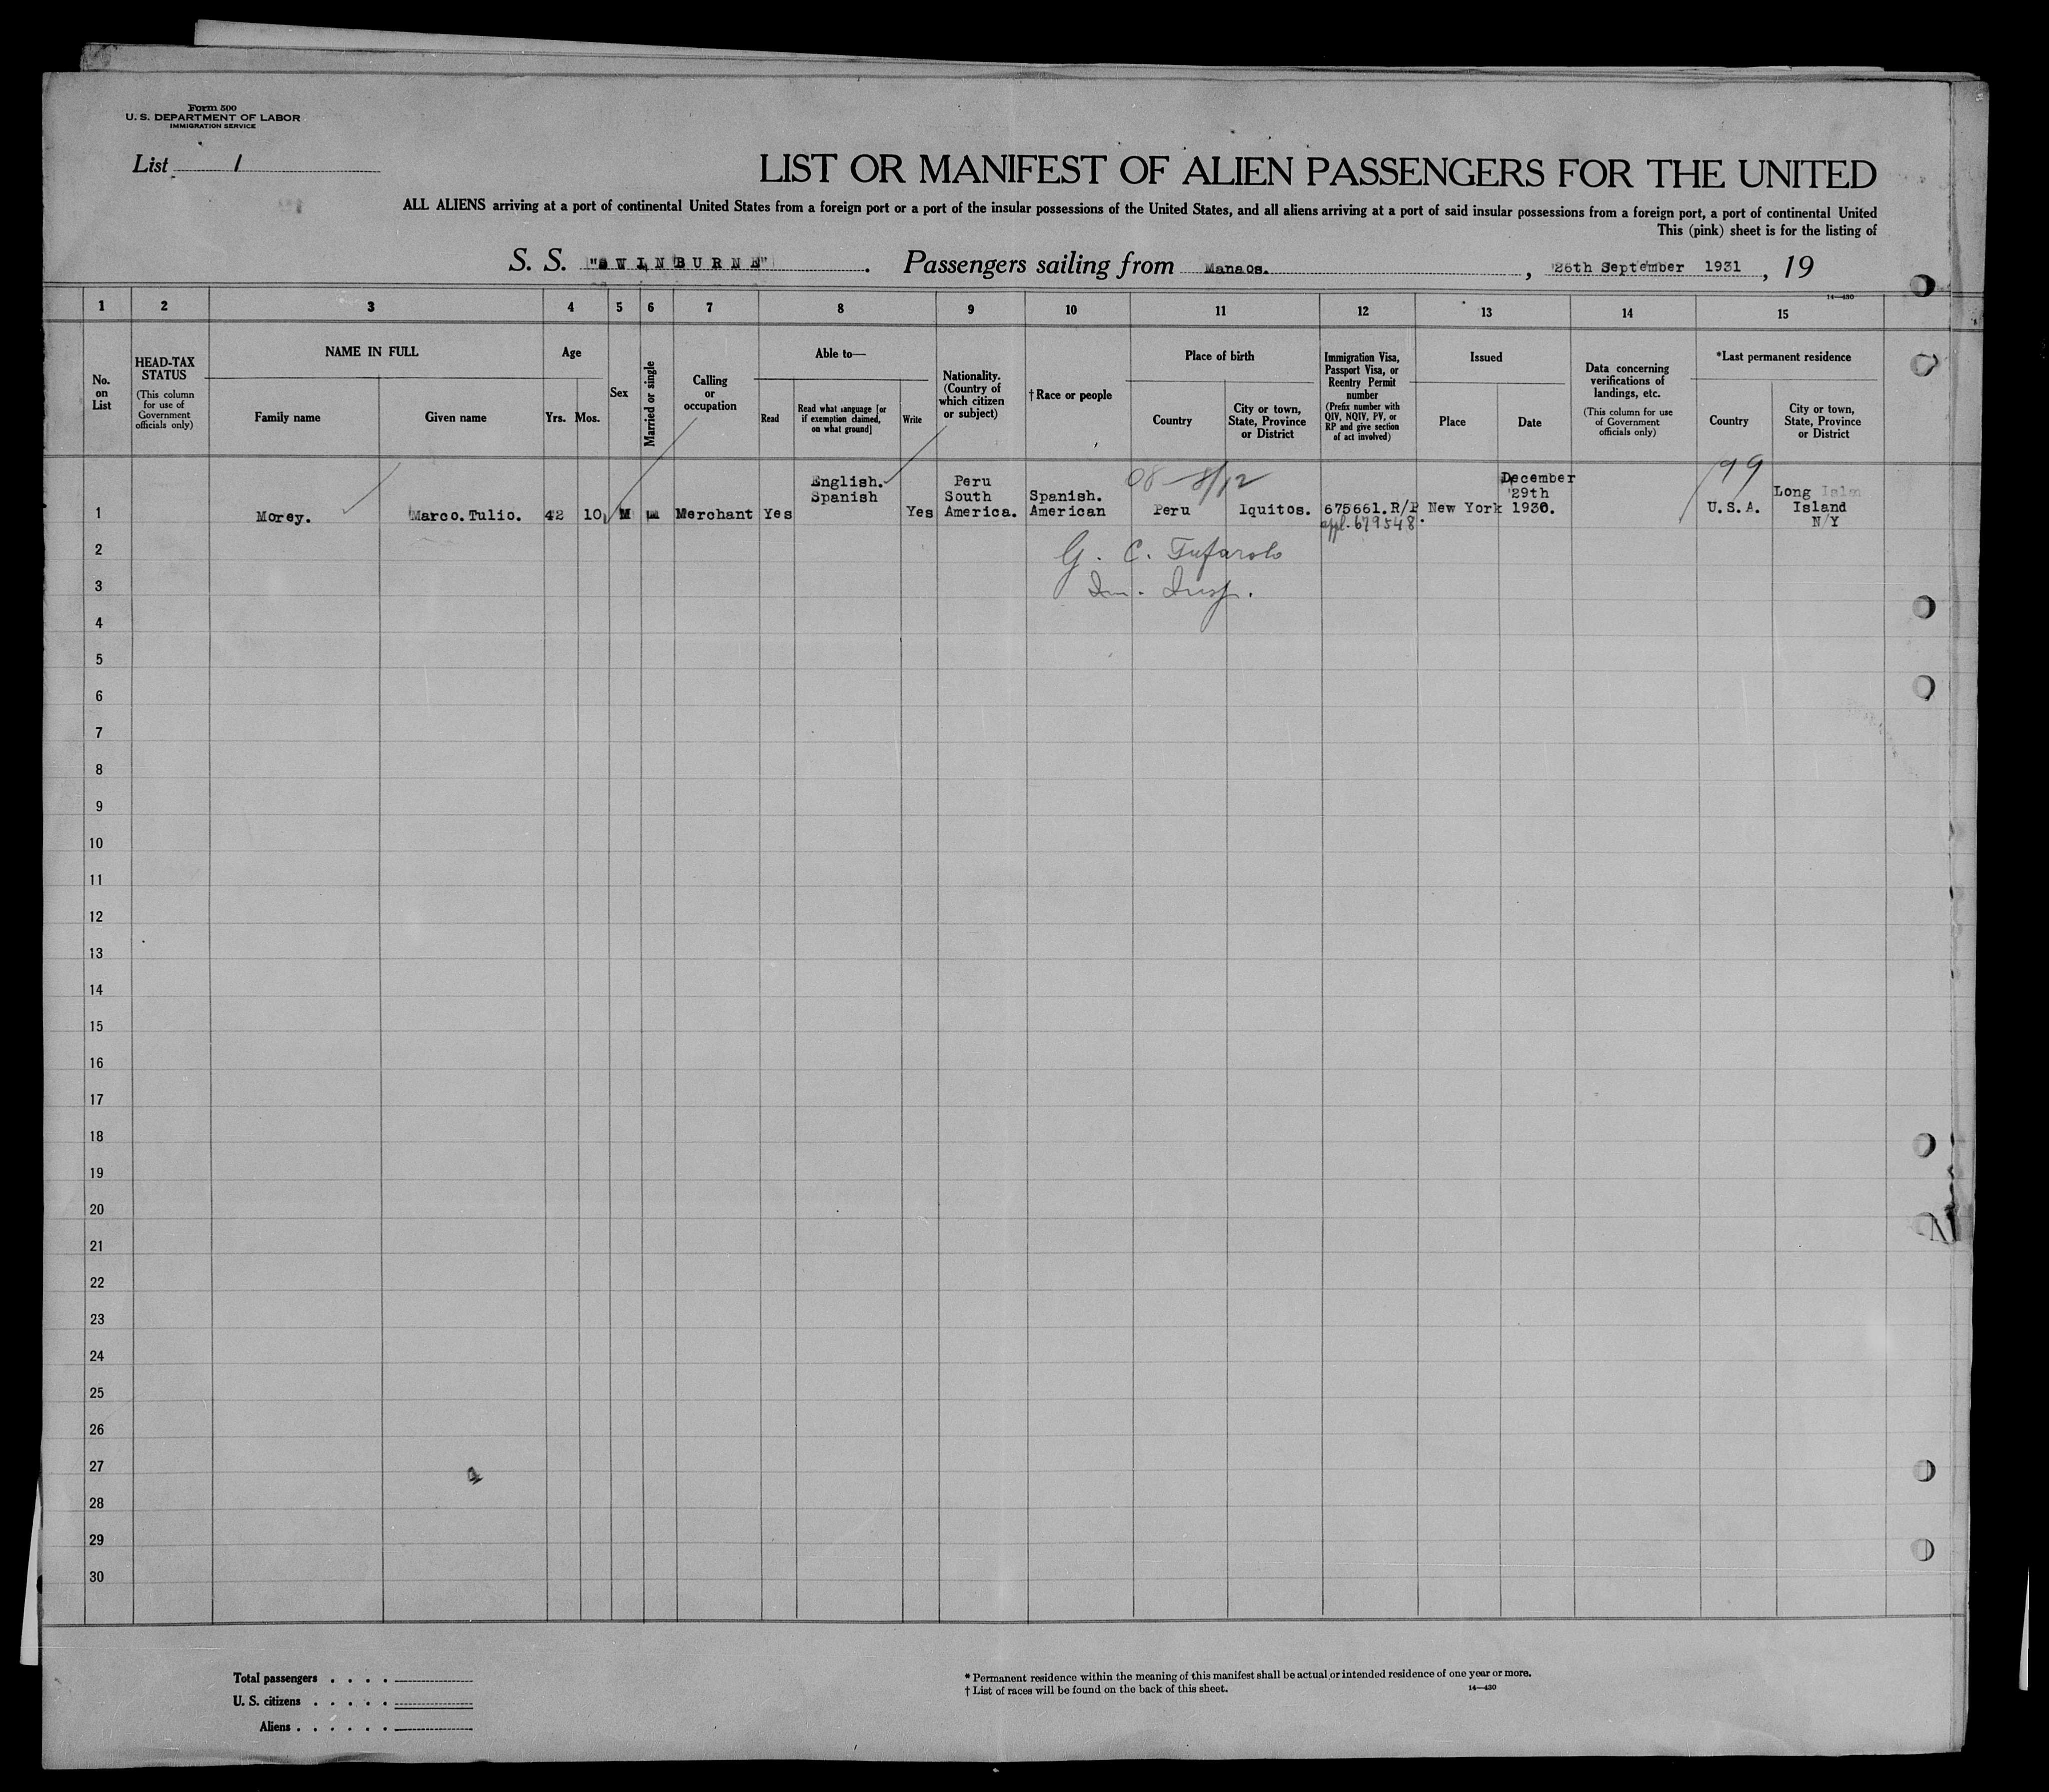 Form 500
U. S. DEPARTMENT OF LABOR
IMMIGRATION SERVICE
List 1
LIST OR MANIFEST OF ALIEN PASSENGERS FOR THE UNITED
ALL ALIENS arriving at a port of continental United States from a foreign port or a port of the insular possessions of the United States, and all aliens arriving at a port of said insular possessions from a foreign port, a port of continental United
This (pink) sheet is for the listing of
S. S. "SWINBURNE" . Passengers sailing from Manaos. , 26th September 1931 , 19
14—430
1 2 3 4 5 6 7 8 9 10 11 12 13 14 15
No. on List
HEAD-TAX STATUS
(This column for use of Government officials only)
NAME IN FULL
Family name
Given name
Age
Yrs. Mos.
Sex
Married or single
Calling or occupation
Able to—
Read
Read what language [or if exemption claimed, on what ground]
Write
Nationality. (Country of which citizen or subject)
† Race or people
Place of birth
Country
City or town, State, Province or District
Immigration Visa, Passport Visa, or Reentry Permit number
(Prefix number with QIV, NQIV, PV, or RP and give section of act involved)
Issued
Place
Date
Data concerning verifications of landings, etc.
(This column for use of Government officials only)
*Last permanent residence
Country
City or town, State, Province or District
1 Morey. Marco.Tulio. 42 10 M m Merchant Yes English. Spanish Yes Peru South America. Spanish. American Peru Iquitos. 675661.R/P New York December 29th 1930. U.S.A. Long Island N/Y
appl. 679548.
99
2
G. C. Tufarolo
3
Im. Insp.
4
5
6
7
8
9
10
11
12
13
14
15
16
17
18
19
20
21
22
23
24
25
26
27
28
29
30
Total passengers . . . .
U. S. citizens . . . . .
Aliens . . . . . .
* Permanent residence within the meaning of this manifest shall be actual or intended residence of one year or more.
† List of races will be found on the back of this sheet.
14—430